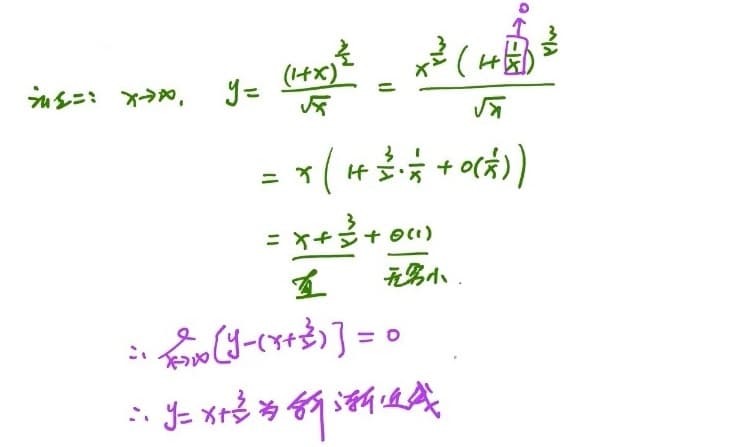 法二: x→∞, y = (1+x)^{3/2} / √x = x^{3/2} (1+1/x)^{3/2} / √x
0
= x ( 1+ 3/2 · 1/x + o(1/x) )
= x + 3/2 + o(1)
直 无穷小.
∴ lim x→∞ [y-(x+3/2)] = 0
∴ y = x+3/2 为斜渐近线